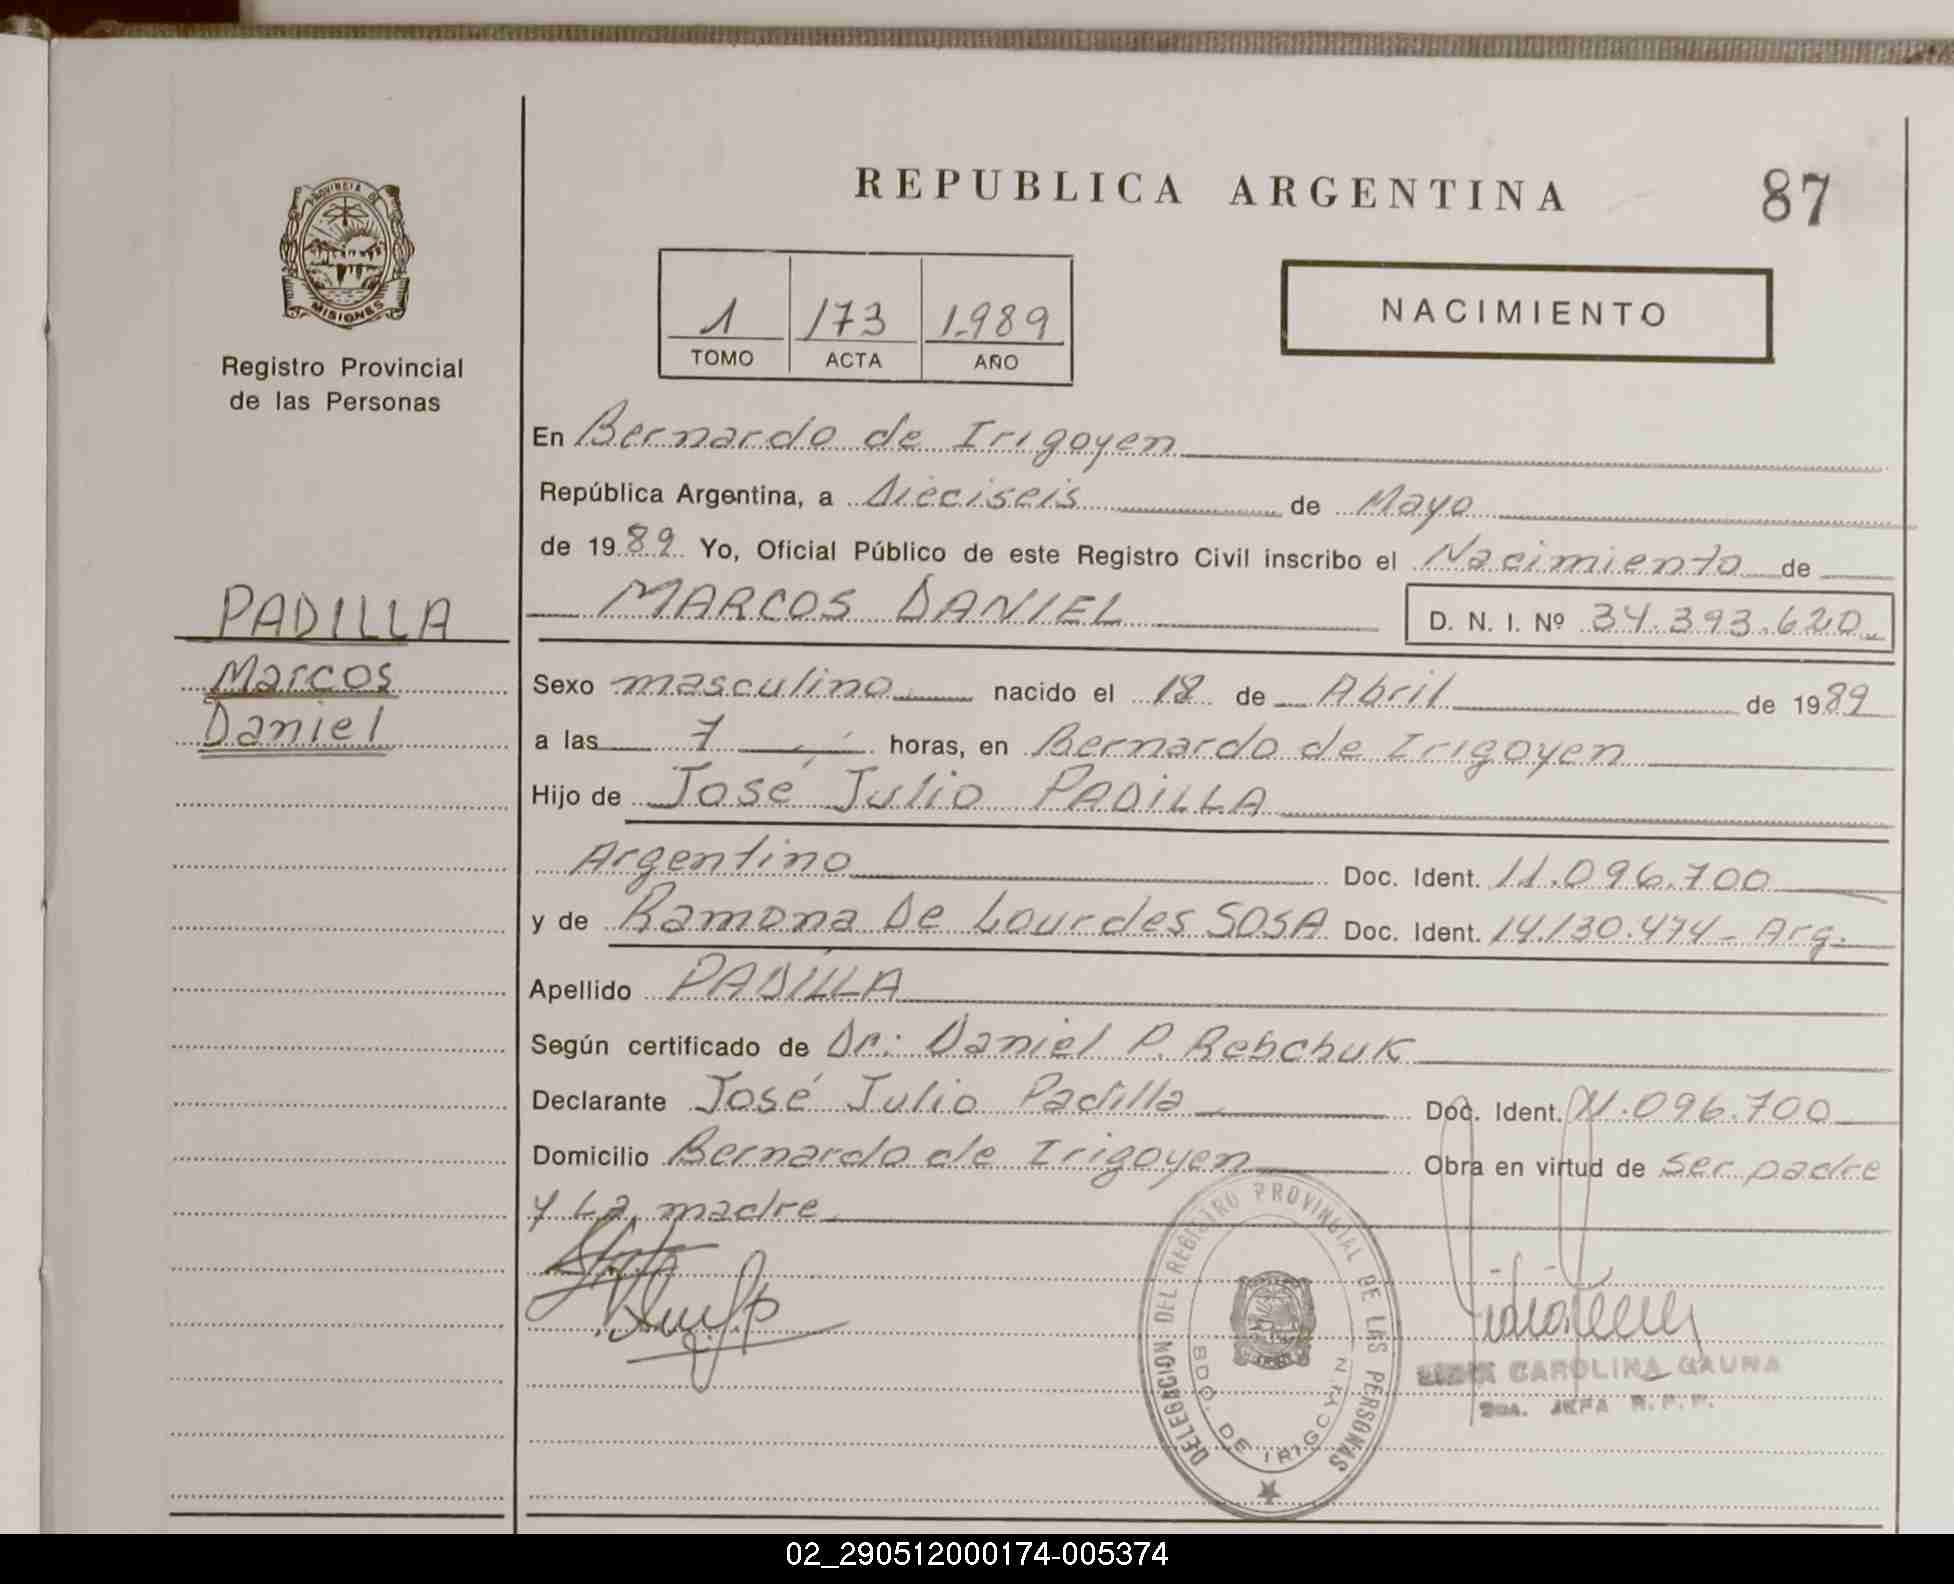 REPUBLICA ARGENTINA
87
PROVINCIA DE
MISIONES
Registro Provincial
de las Personas
1 173 1.989
TOMO ACTA AÑO
NACIMIENTO
En Bernardo de Irigoyen
República Argentina, a Dieciseis de Mayo
de 1989 Yo, Oficial Público de este Registro Civil inscribo el Nacimiento de
MARCOS DANIEL D. N. I. Nº 34.393.620
PADILLA
Marcos
Daniel
Sexo masculino nacido el 18 de Abril de 1989
a las 7 horas, en Bernardo de Irigoyen
Hijo de José Julio PADILLA
Argentino Doc. Ident. 11.096.700
y de Ramona De Lourdes SOSA Doc. Ident. 14.130.474 - Arg.
Apellido PADILLA
Según certificado de Dr: Daniel P. Rebchuk
Declarante José Julio Padilla Doc. Ident. 11.096.700
Domicilio Bernardo de Irigoyen Obra en virtud de ser padre
y La madre
DELEGACION DEL REGISTRO PROVINCIAL DE LAS PERSONAS
BDO. DE IRIGOYEN
CAROLINA GAUNA
JEFA R. P. P.
02_290512000174-005374